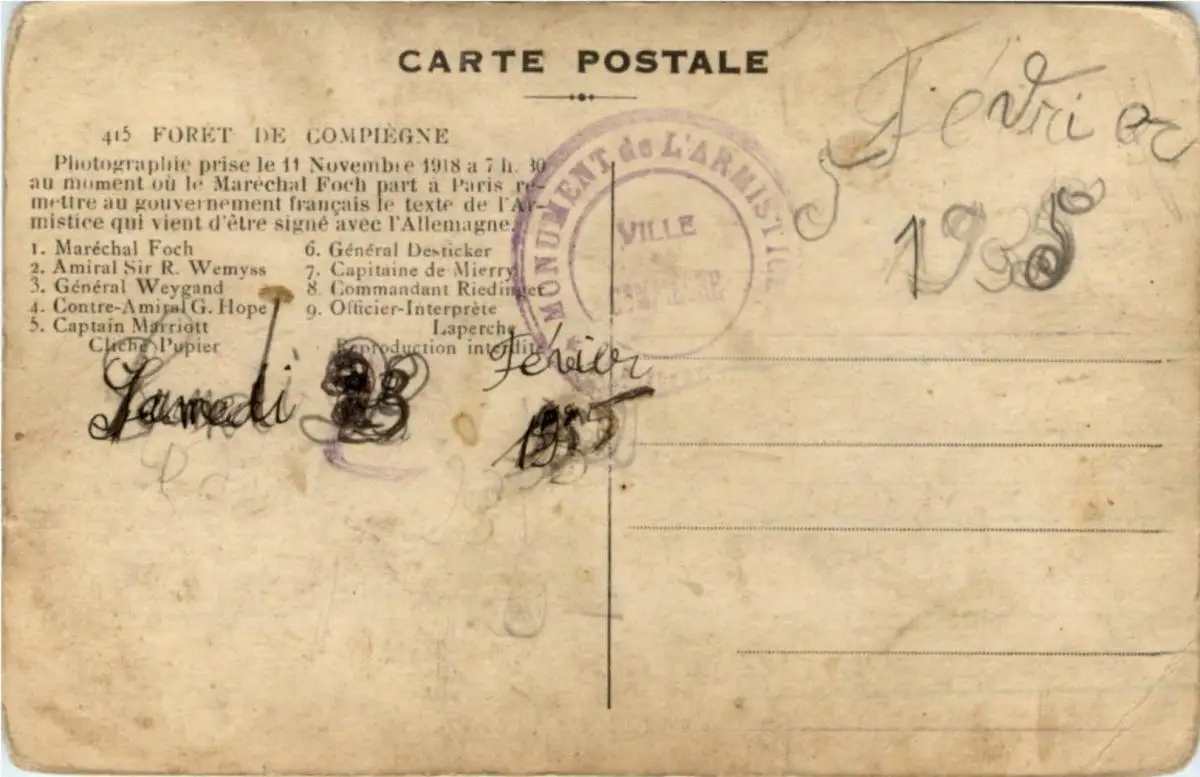 CARTE POSTALE
415 FORÊT DE COMPIÈGNE
Photographie prise le 11 Novembre 1918 à 7 h. 30
au moment où le Maréchal Foch part à Paris re-
mettre au gouvernement français le texte de l'Ar-
mistice qui vient d'être signé avec l'Allemagne.
1. Maréchal Foch
2. Amiral Sir R. Wemyss
3. Général Weygand
4. Contre-Amiral G. Hope
5. Captain Marriott
Cliché Pupier
6. Général Desticker
7. Capitaine de Mierry
8. Commandant Riedinger
9. Officier-Interprète
Laperche
Reproduction interdite
MONUMENT de L'ARMISTICE
VILLE
COMPIEGNE
Février
1935
Samedi 23
Février
1935